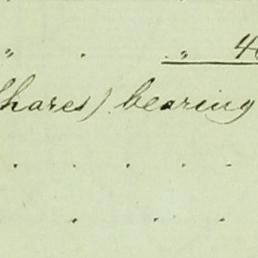 " . . " 40
Shares) bearing
. . . . . .
. . .